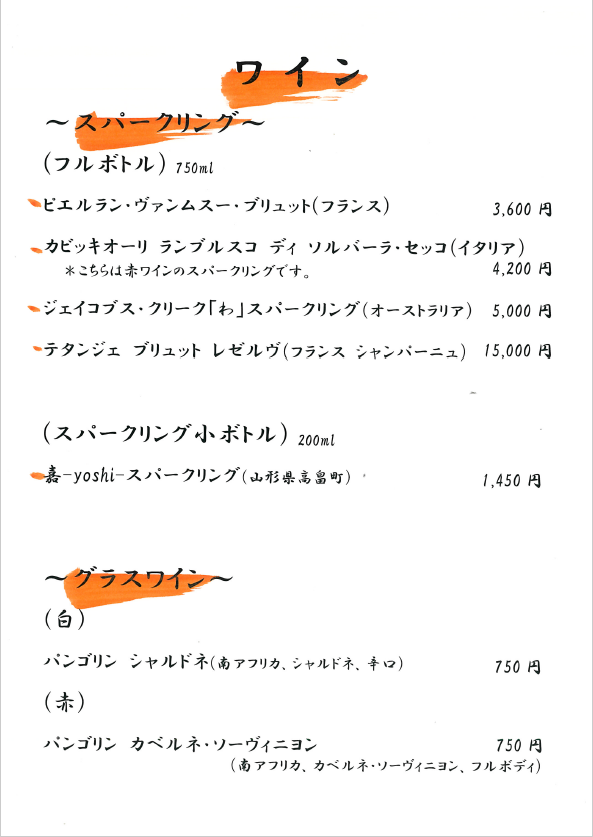 ワイン
～スパークリング～
(フルボトル) 750ml
ピエルラン・ヴァンムスー・ブリュット(フランス) 3,600 円
カビッキオーリ ランブルスコ ディ ソルバーラ・セッコ(イタリア)
＊こちらは赤ワインのスパークリングです。 4,200 円
ジェイコブス・クリーク「わ」スパークリング(オーストラリア) 5,000 円
テタンジェ ブリュット レゼルヴ(フランス シャンパーニュ) 15,000 円
(スパークリング小ボトル) 200ml
嘉-yoshi-スパークリング(山形県高畠町) 1,450 円
～グラスワイン～
(白)
パンゴリン シャルドネ(南アフリカ、シャルドネ、辛口) 750 円
(赤)
パンゴリン カベルネ・ソーヴィニヨン 750 円
(南アフリカ、カベルネ・ソーヴィニヨン、フルボディ)